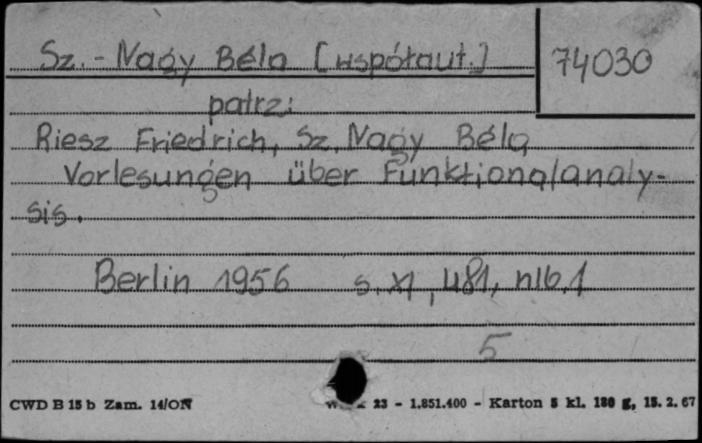 Sz. - Nagy Béla [współaut.] 74030
patrz:
Riesz Friedrich, Sz. Nagy Béla
Vorlesungen über Funktionalanaly-
sis.
Berlin 1956 s. XI, 481, nlb. 1
5
CWD B 15 b Zam. 14/ON 23 - 1.851.400 - Karton 5 kl. 180 g, 15. 2. 67